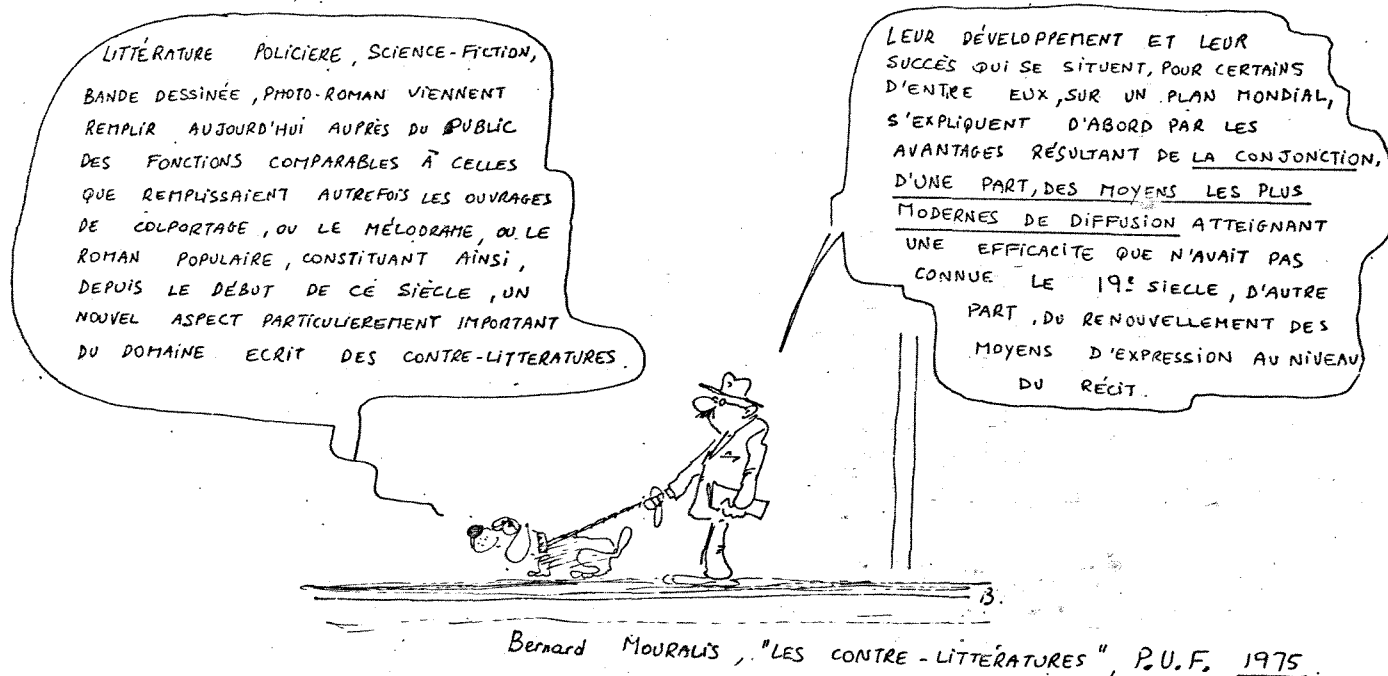 LITTÉRATURE POLICIERE, SCIENCE-FICTION,
BANDE DESSINÉE, PHOTO-ROMAN VIENNENT
REMPLIR AUJOURD'HUI AUPRÈS DU PUBLIC
DES FONCTIONS COMPARABLES À CELLES
QUE REMPLISSAIENT AUTREFOIS LES OUVRAGES
DE COLPORTAGE, OU LE MÉLODRAME, OU LE
ROMAN POPULAIRE, CONSTITUANT AINSI,
DEPUIS LE DÉBUT DE CE SIÈCLE, UN
NOUVEL ASPECT PARTICULIEREMENT IMPORTANT
DU DOMAINE ECRIT DES CONTRE-LITTERATURES.
LEUR DÉVELOPPEMENT ET LEUR
SUCCÈS QUI SE SITUENT, POUR CERTAINS
D'ENTRE EUX, SUR UN PLAN MONDIAL,
S'EXPLIQUENT D'ABORD PAR LES
AVANTAGES RÉSULTANT DE LA CONJONCTION,
D'UNE PART, DES MOYENS LES PLUS
MODERNES DE DIFFUSION ATTEIGNANT
UNE EFFICACITE QUE N'AVAIT PAS
CONNUE LE 19e SIECLE, D'AUTRE
PART, DU RENOUVELLEMENT DES
MOYENS D'EXPRESSION AU NIVEAU
DU RÉCIT.
B.
Bernard MOURALIS, "LES CONTRE-LITTÉRATURES", P.U.F. 1975.